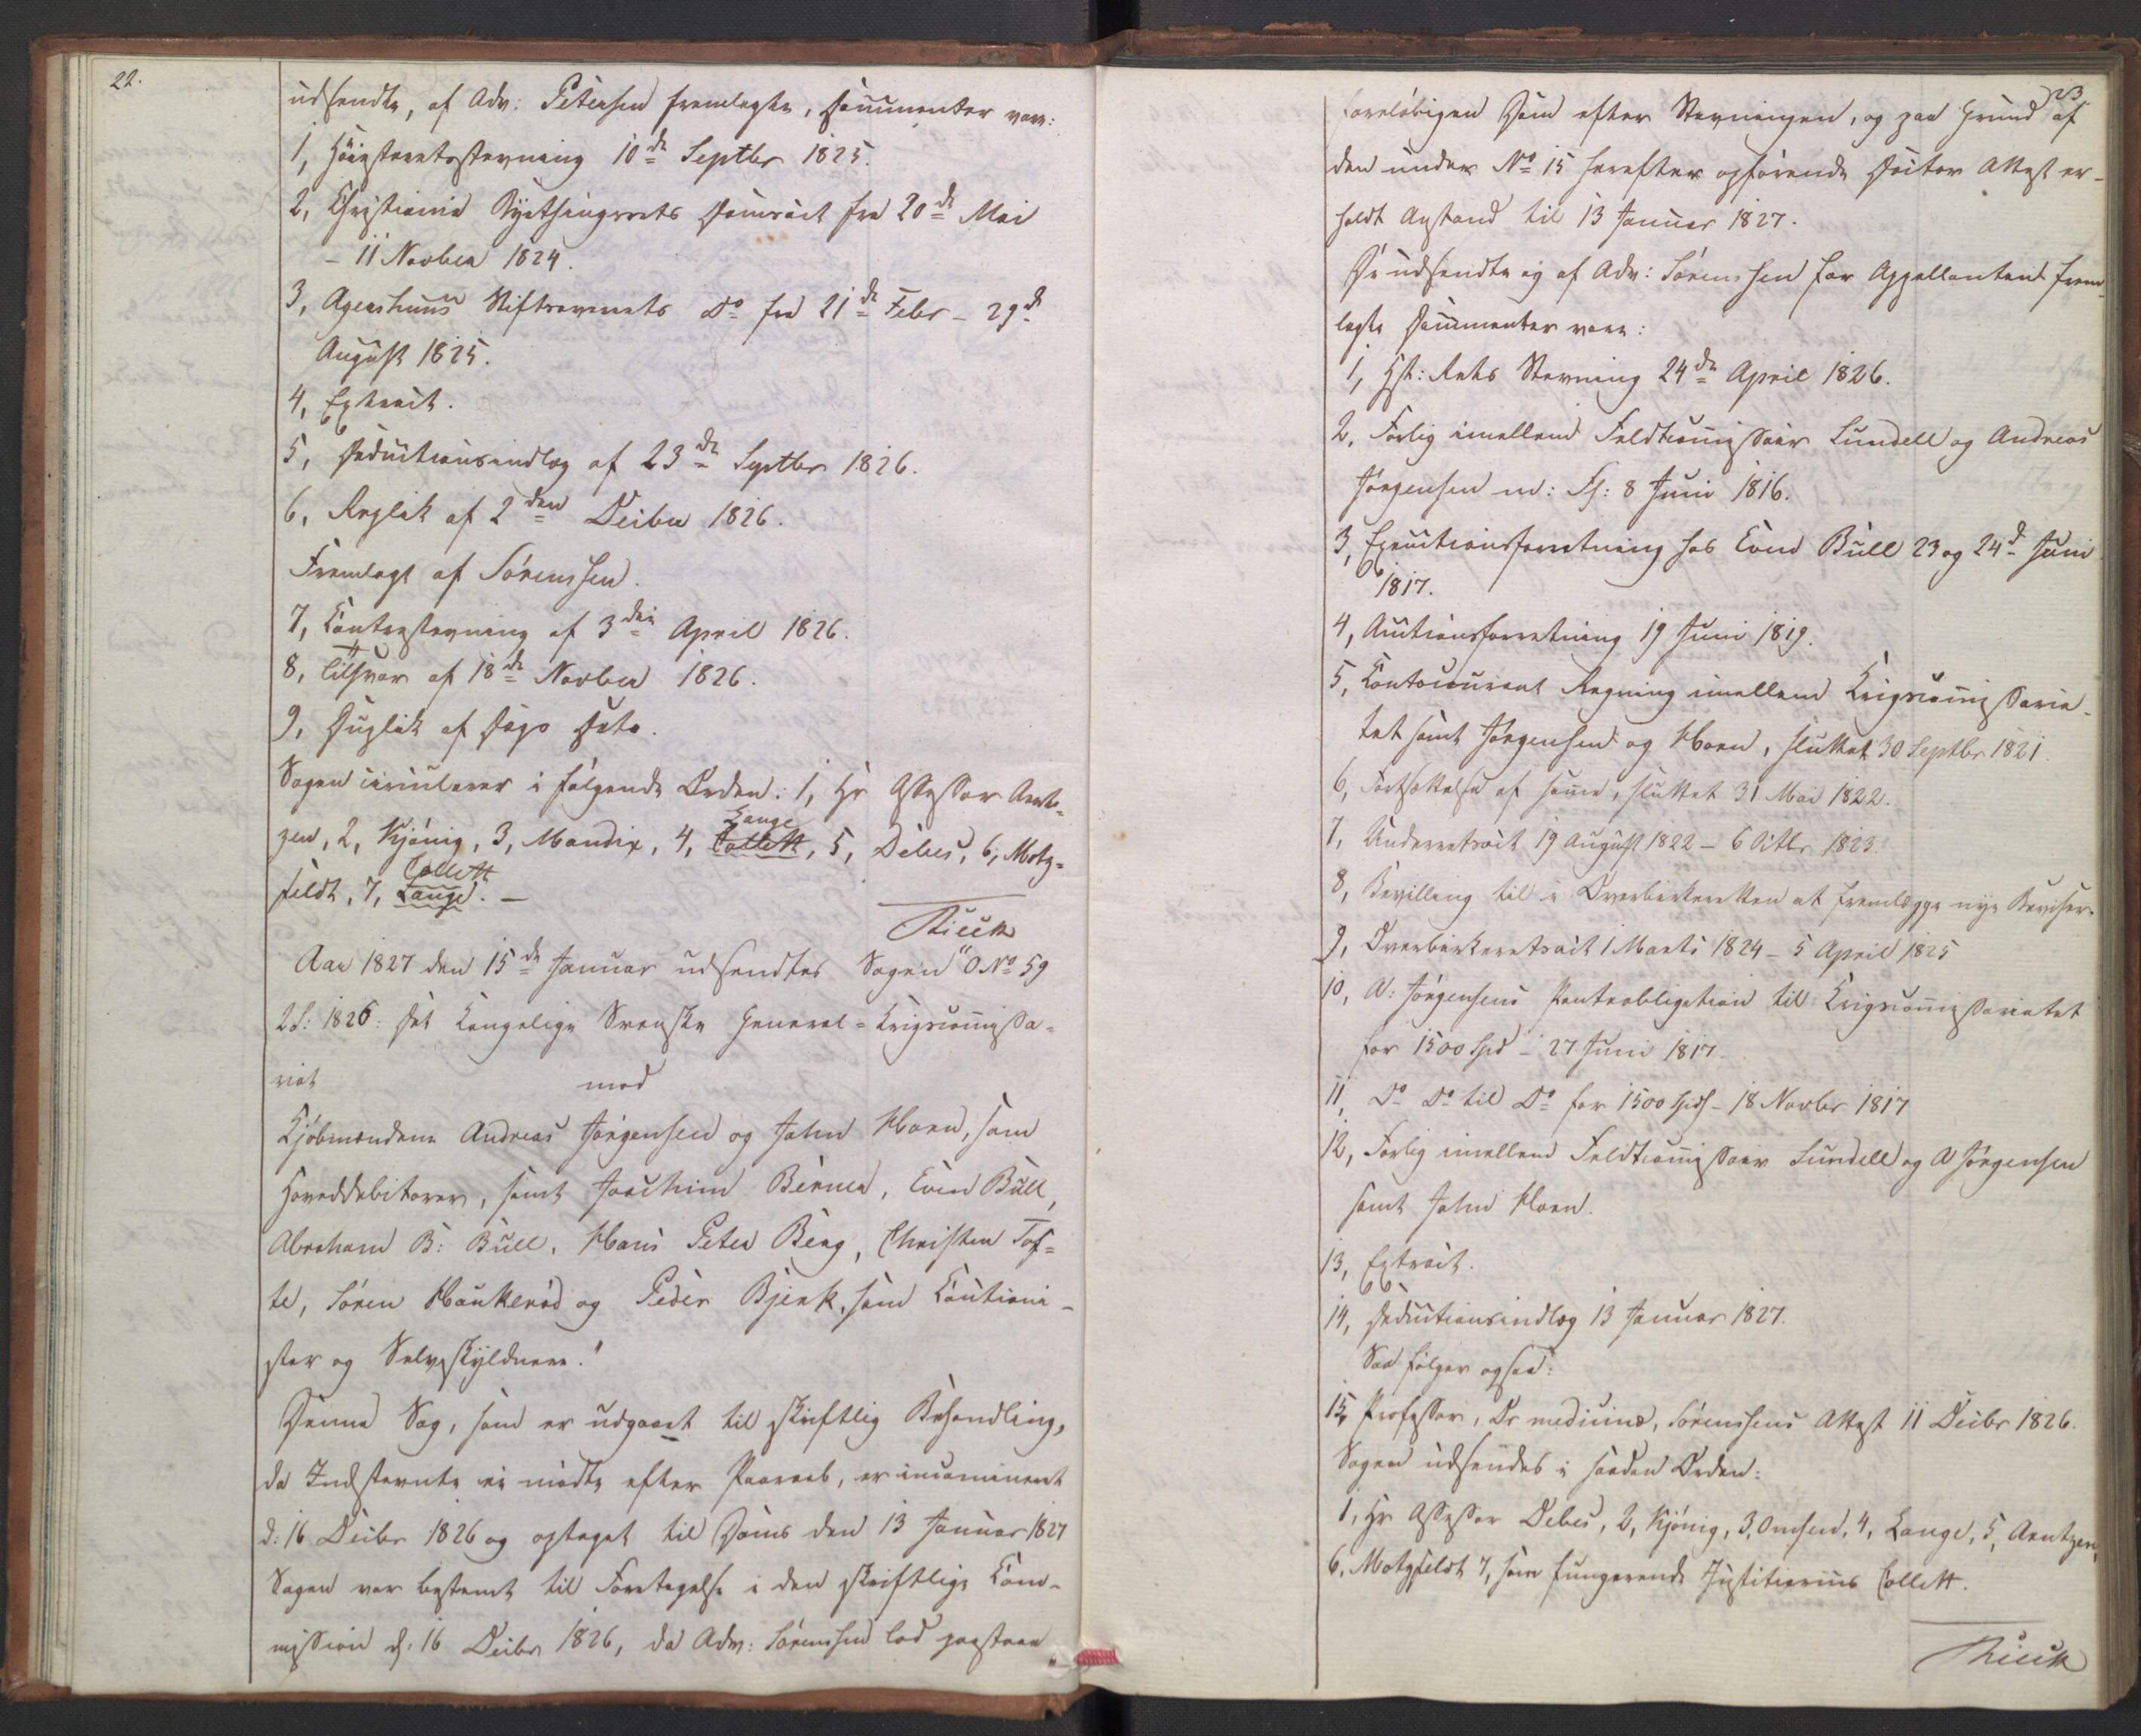 22.
udsendte, af Adv: Petersen fremlagte, Documenter var:
1, Höiesteretsstevning 10de Septbr 1825.
2, Christiania Byethingsrets Domsact fra 20de Mai
– 11 Novber 1824.
3, Agershuus Stiftsoverrets Do fra 21de Febr – 29de
August 1825.
4, Extract.
5, Deductionsindlæg af 23de Septbr 1826.
6, Replik af 2den Decber 1826.
Fremlagt af Sörenssen.
7, Contrastevning af 3die April 1826.
8, Tilsvar af 18de Novber 1826.
9, Duplik af Dags Dato.
Sagen circulerer i følgende Orden: 1, Hr Assessor Arnt-
zen, 2, Kjönig, 3, Mandix, 4, Collett Lange, 5, Debes, 6, Motz-
feldt, 7, Lange Collett. –
Rieck
Aar 1827 den 15de Januar udsendtes Sagen "O No 59
2 S: 1826: Det Kongelige Svenske General-Krigscommissa-
riat mod
Kjøbmændene Andreas Jörgensen og John Horn, som
Hoveddebitorer, samt Joachim Berner, Even Bull,
Abraham B: Bull, Hans Peter Berg, Christen Tof-
te, Sören Haukeröd og Peder Bjerk, som Cautioni-
ster og Selvskyldnere."
Denne Sag, som er udgaaet til skriftlig Behandling,
da Indstevnte ei mödte efter Paaraab, er incamineret
d: 16 Decbr 1826 og optaget til Doms den 13 Januar 1827
Sagen var bestemt til Foretagelse i den skriftlige Com-
mission d: 16 Decbr 1826, da Adv: Sörenssen lod paastaae
23
foreløbigen Dom efter Stevningen, og paa Grund af
den under No 15 herefter opførende Doctor Attest er-
holdt Anstand til 13 Januar 1827.
De udsendte og af Adv: Sörenssen for Appellanten frem-
lagte Documenter vare:
1, Hst: Rets Stevning 24de April 1826.
2, Forlig imellem Feldtcommissair Lundell og Andreas
Jörgensen m: Fl: 8 Juni 1816.
3, Executionsforretning hos Even Bull 23 og 24de Juni
1817.
4, Auctionsforretning 19 Juni 1819.
5, Contocourant Regning imellem Krigscommissaria-
tet samt Jörgensen og Horn, sluttet 30 Septbr 1821.
6, Fortsættelse af samme, sluttet 31 Mai 1822.
7, Underretsact 19 August 1822 – 6 Octbr 1823.
8, Bevilling til i Overbirkeretten at fremlægge nye Beviser.
9, Overbirkeretsact 1 Marts 1824 – 5 April 1825
10, A: Jörgensens Panteobligation til Krigscommissariatet
for 1500 Spd – 27 Juni 1817.
11, Do Do til Do for 1500 Spd – 18 Novbr 1817
12, Forlig imellem Feldtcommissair Lundell og A Jörgensen
samt John Horn.
13, Extract.
14, Deductionsindlæg 13 Januar 1827.
Saa følger ogsaa:
15, Professor, Dr medicinæ, Sörenssens Attest 11 Decbr 1826.
Sagen udsendes i saadan Orden:
1, Hr Assessor Debes, 2, Kjönig, 3, Omsen, 4, Lange, 5, Arntzen,
6, Motzfeldt 7, som fungerende Justitiarius Collett.
Rieck